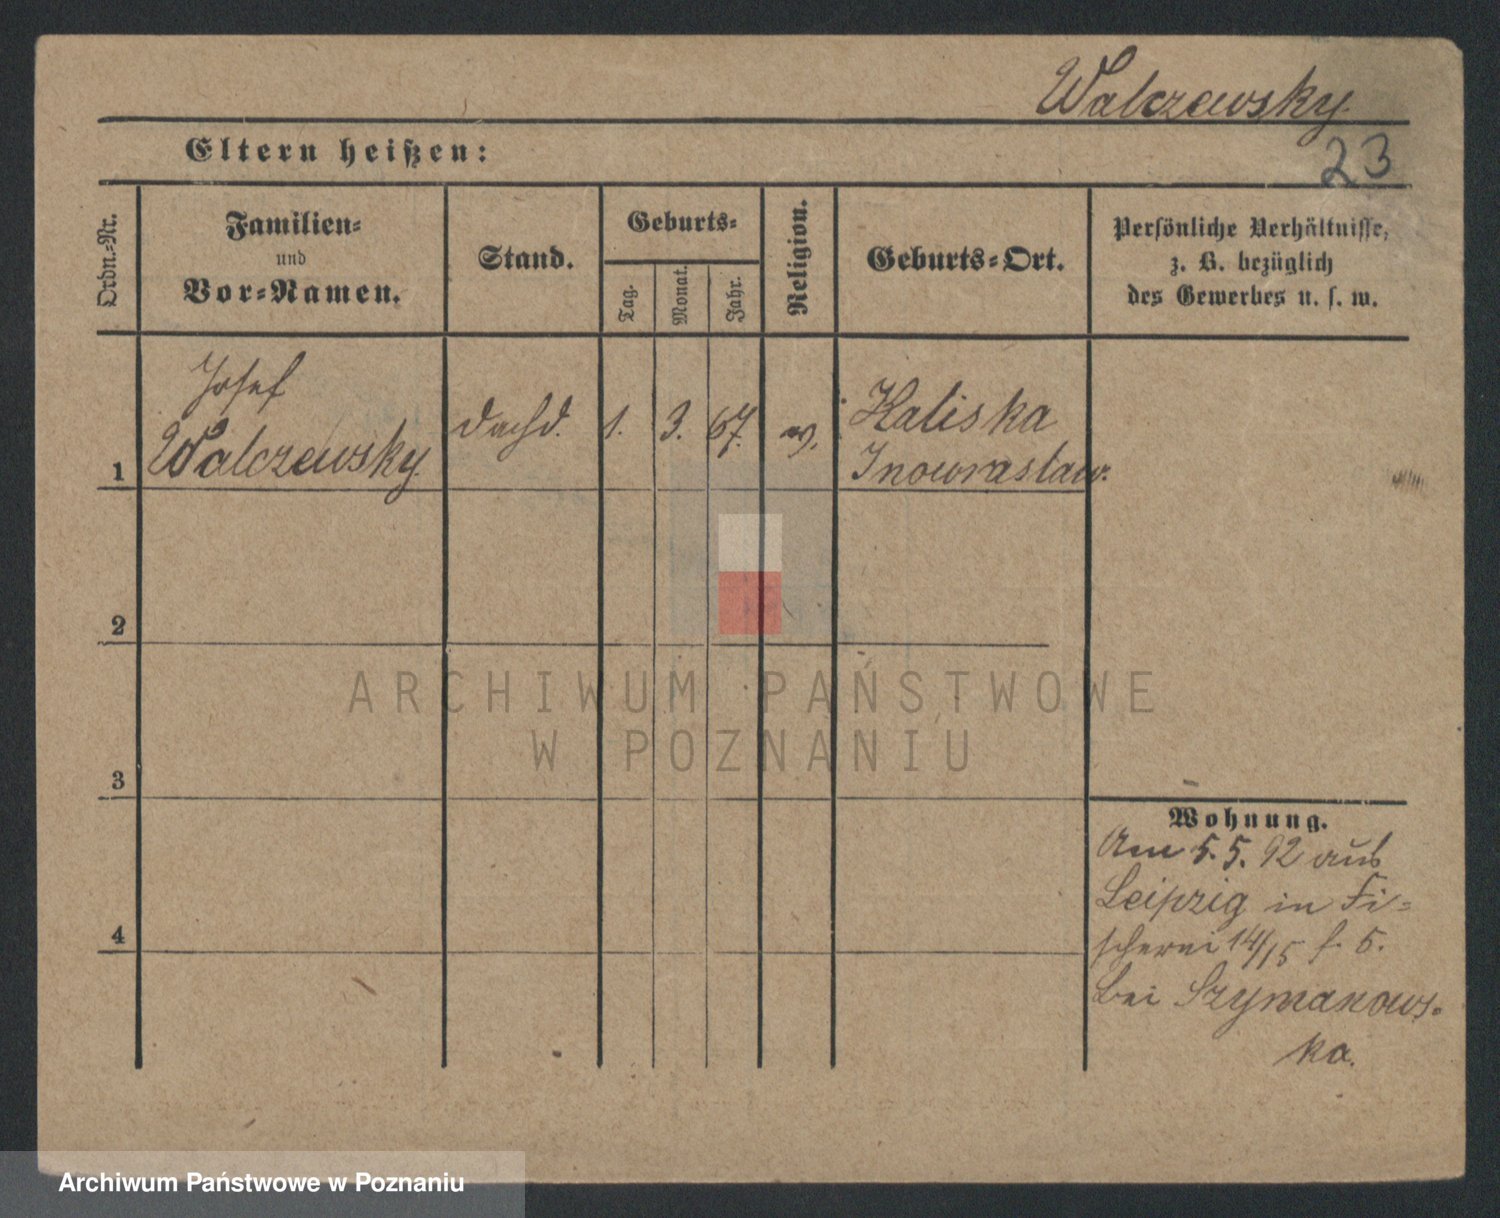 Walczewsky.
23
Eltern heißen:
Ordn.-Nr.
Familien-
und
Vor-Namen.
Stand.
Geburts-
Tag.
Monat.
Jahr.
Religion.
Geburts-Ort.
Persönliche Verhältnisse,
z. B. bezüglich
des Gewerbes u. s. w.
1
Josef
Walczewsky.
dachd.
1.
3.
67.
Kaliska
Inowraslaw.
2
3
4
Wohnung.
Am 5. 5. 92 aus
Leipzig in Fi-
scherei 14/15 f. 5.
bei Szymanows-
ka.
ARCHIWUM PAŃSTWOWE
W POZNANIU
Archiwum Państwowe w Poznaniu